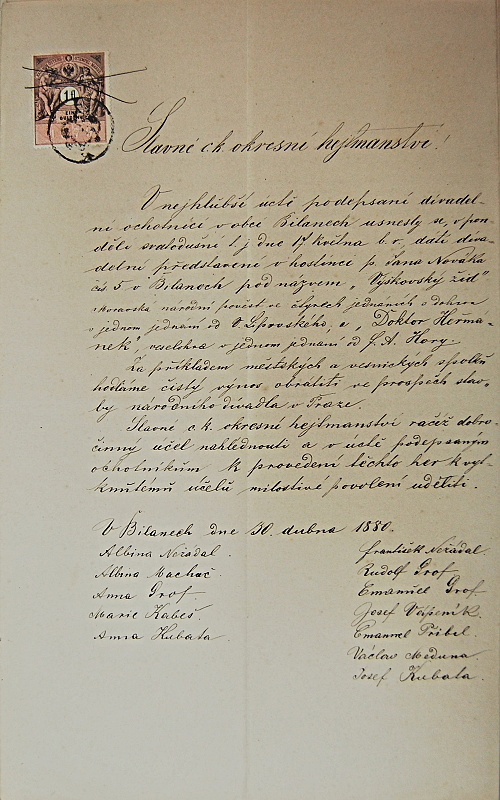 10
Slavné c.k. okresní hejtmanství!
V nejhlubší úctě podepsaní divadel-
ní ochotníci v obci Bílanech usnesly se, v pon-
děli svatodušní t.j. dne 17 května b.r. dáti diva-
delní představení v hostinci p. Jana Nováka
čís 5. v Bílanech pod názvem „Vyškovský žid"
moravská národní pověst ve čtyrech jednáních s dohrou
v jednom jednání od Lipovského, a „Doktor Heřmá-
nek", veselohra v jednom jednání od J. A. Hory.
Za příkladem městských a vesnických spolků
hodláme čistý výnos obrátiti ve prospěch stav-
by národního divadla v Praze.
Slavné c.k. okresní hejtmanství račiž dobro-
činný účel nahlédnouti a v úctě podepsaným
ochotníkům k provedení těchto her k vyt-
knutému účelu milostivé povolení uděliti.
V Bílanech dne 30. dubna 1880.
Albina Nežádal.
Albina Machač.
Anna Grof.
Marie Kabeš.
Anna Kubata.
František Nežádal.
Rudolf Grof.
Emanuel Grof.
Josef Vášeník.
Emanuel Přibil.
Václav Meduna.
Josef Kubata.